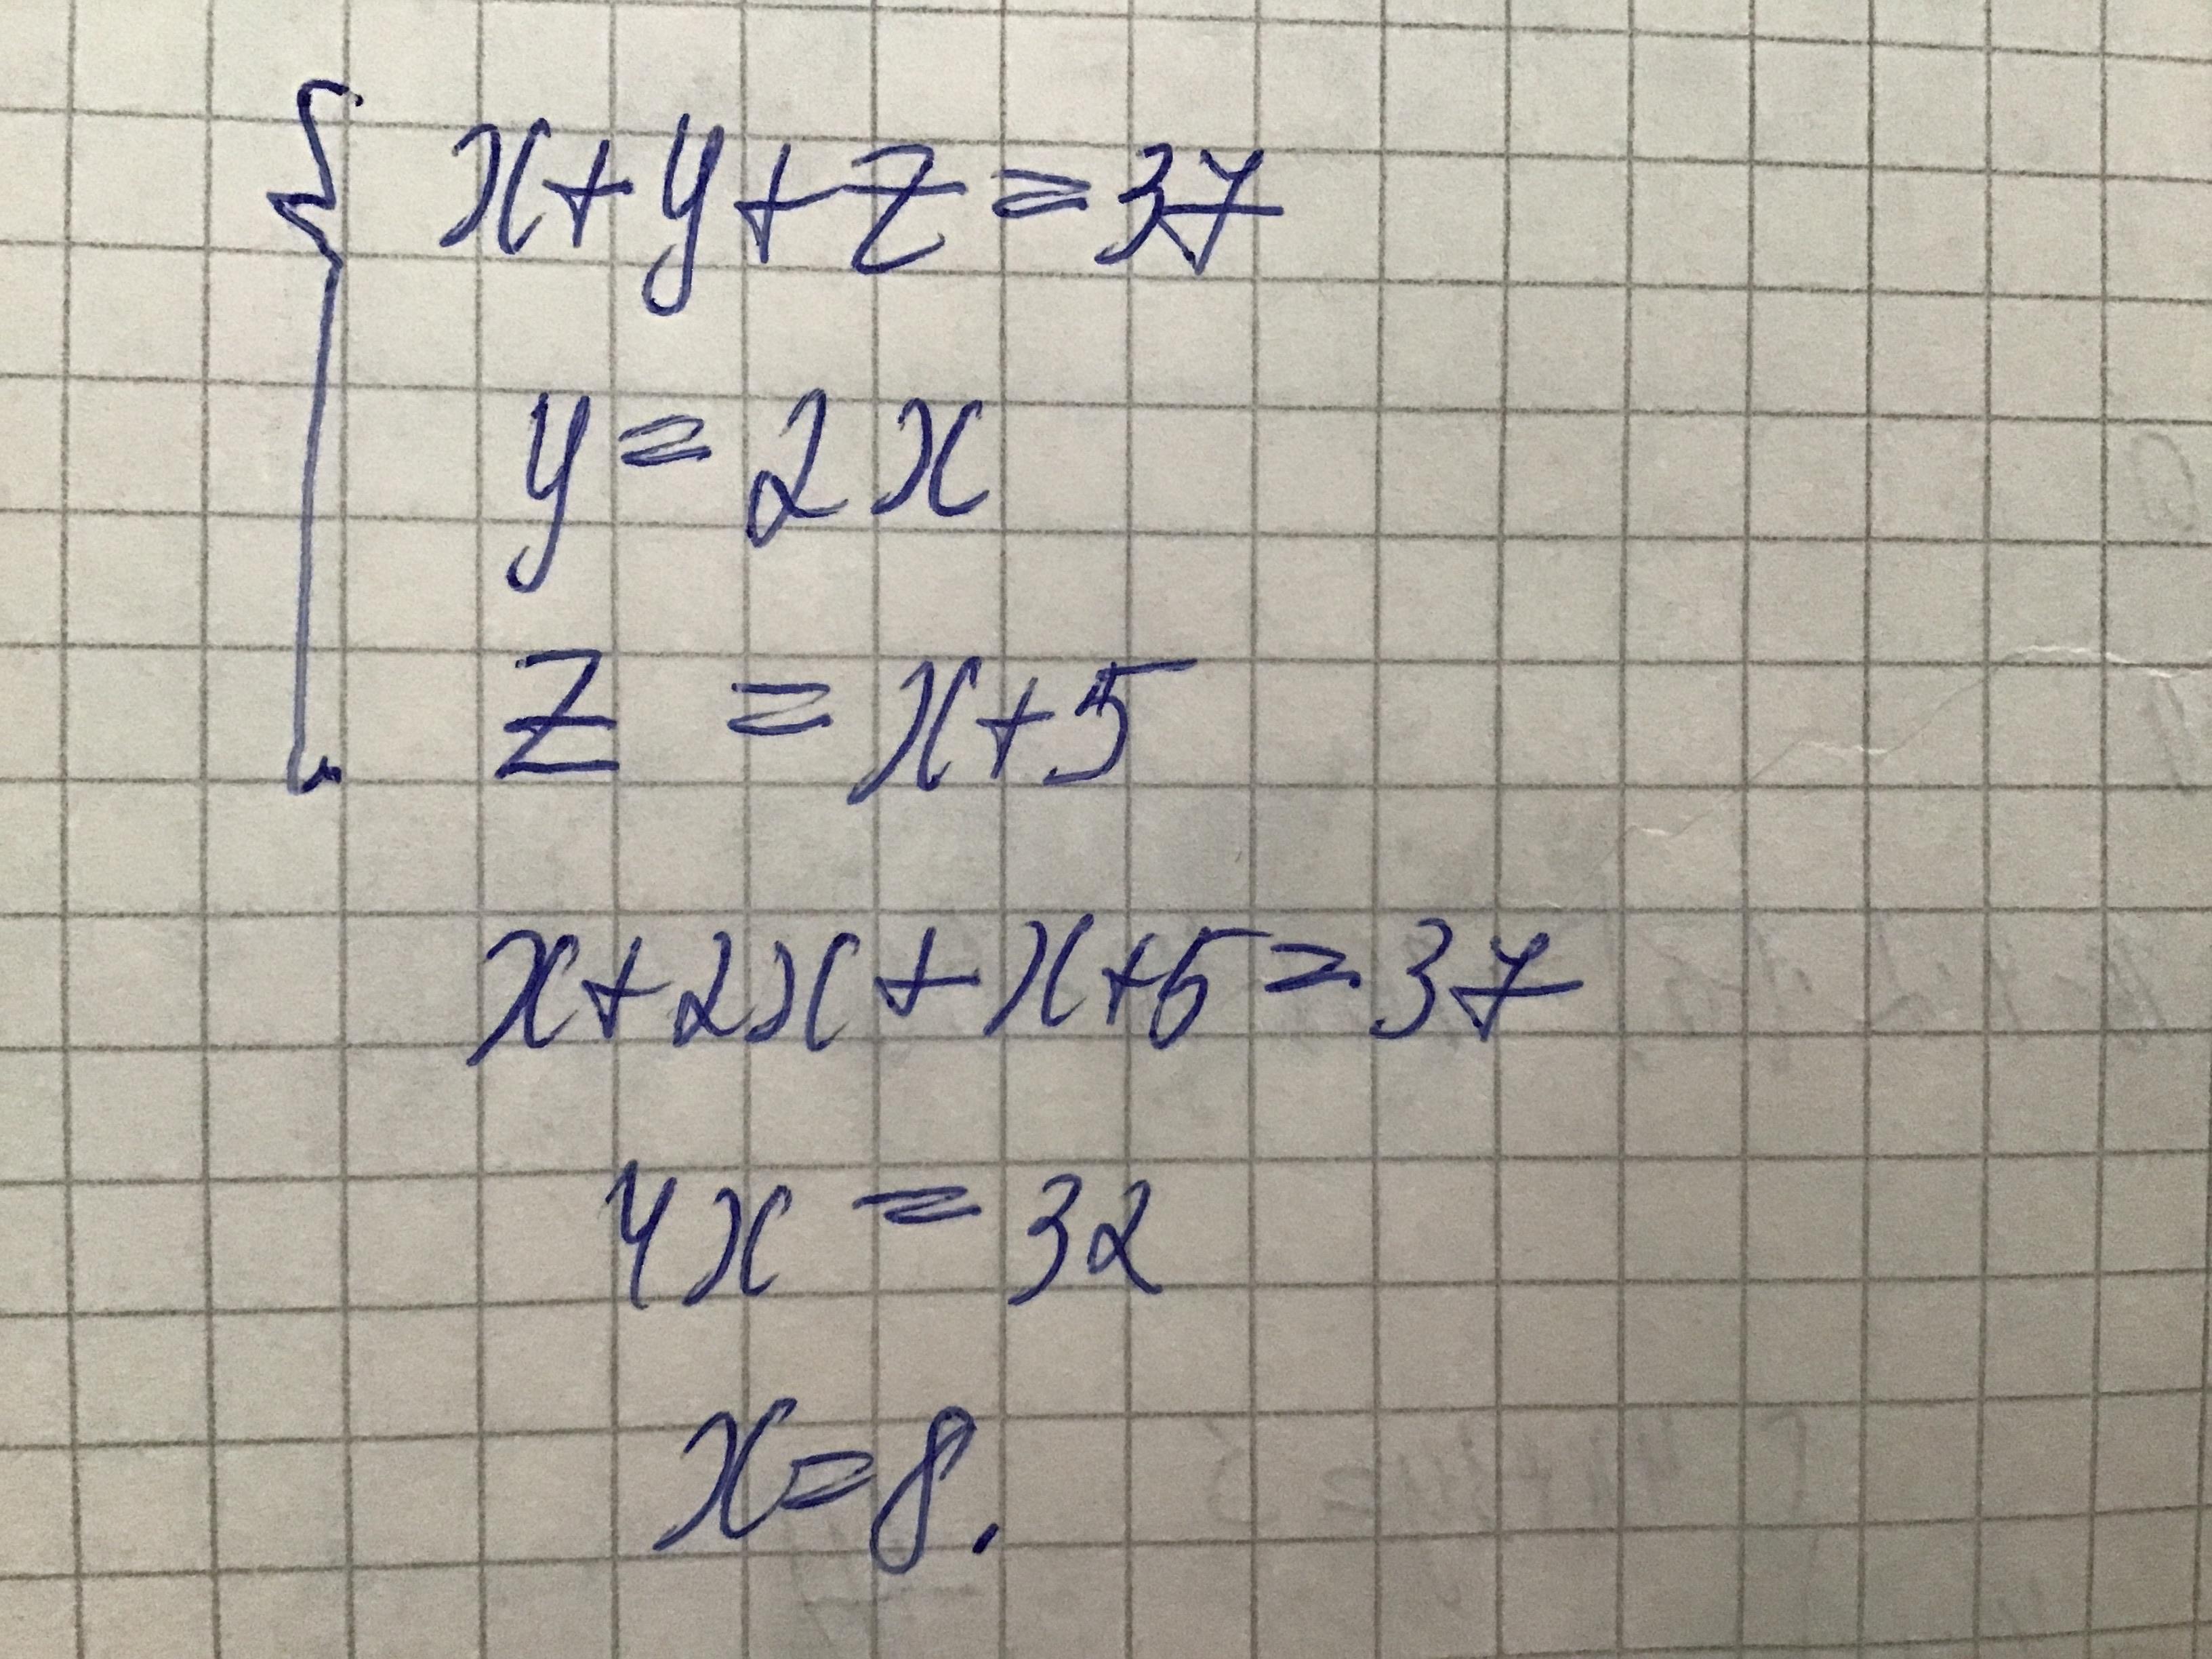 x+y+z=37
y=2x
z=x+5
x+2x+x+5=37
4x=32
x=8.